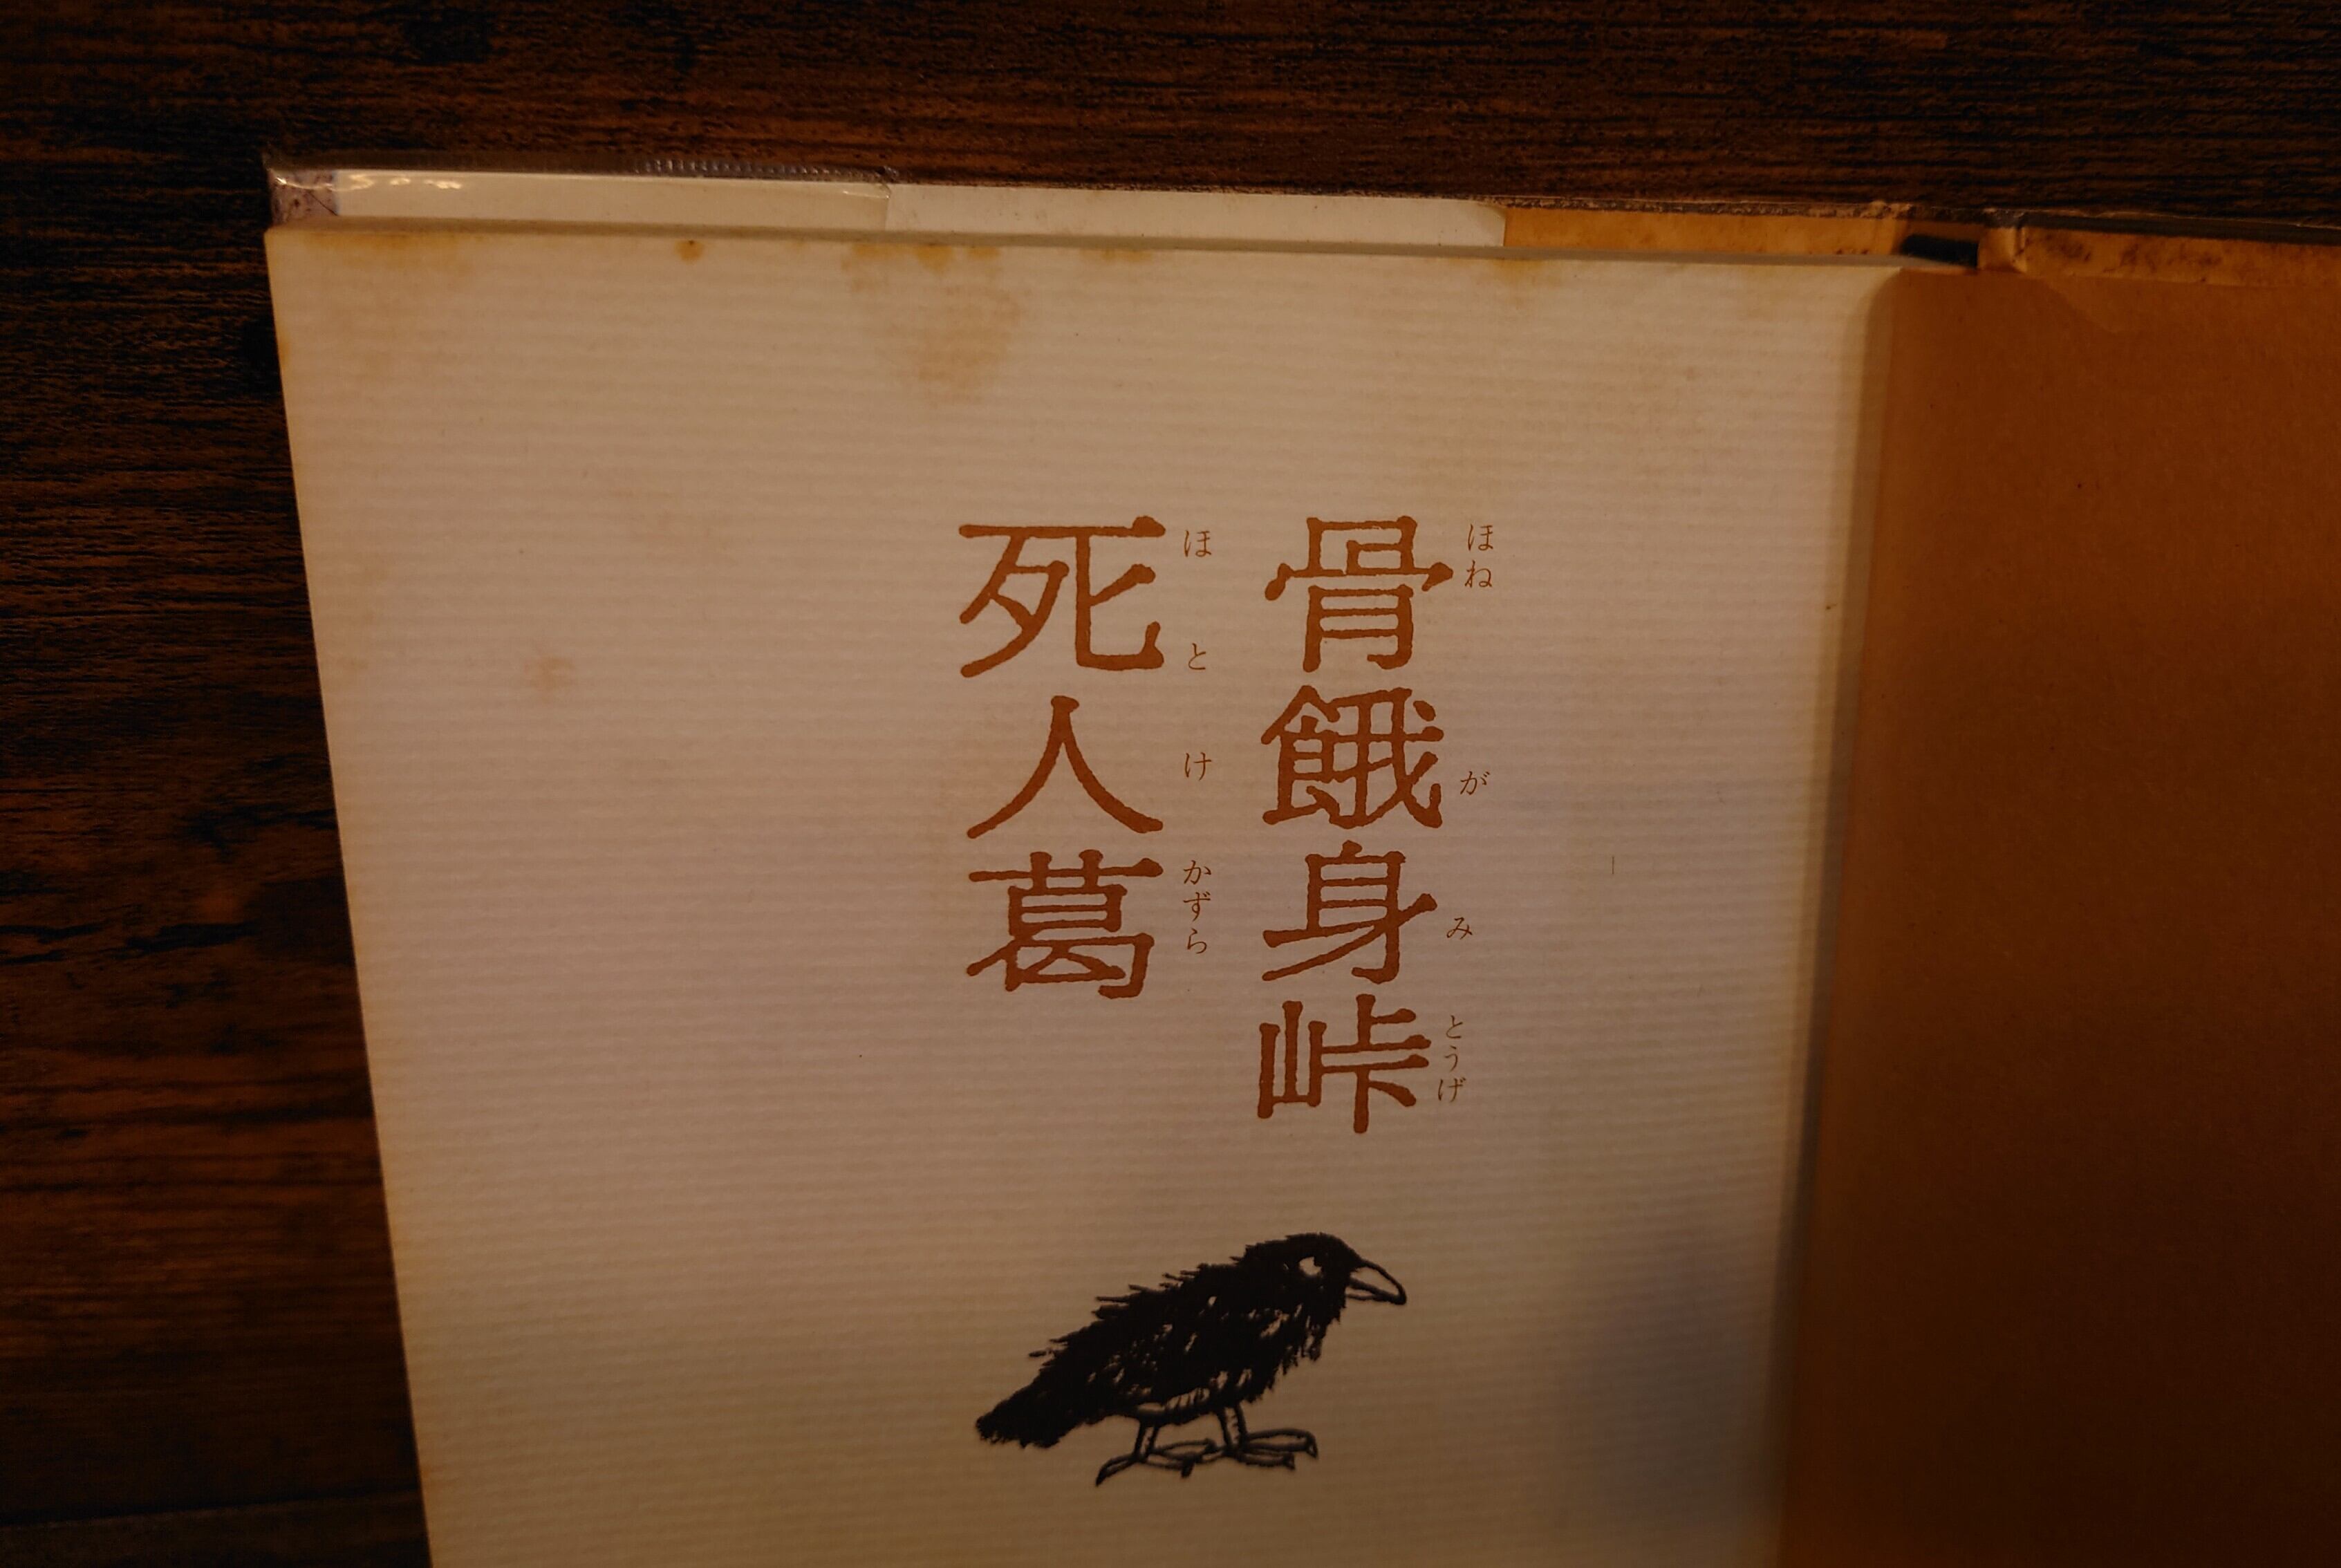 骨餓身峠
ほねがみとうげ
死人葛
ほとけかずら